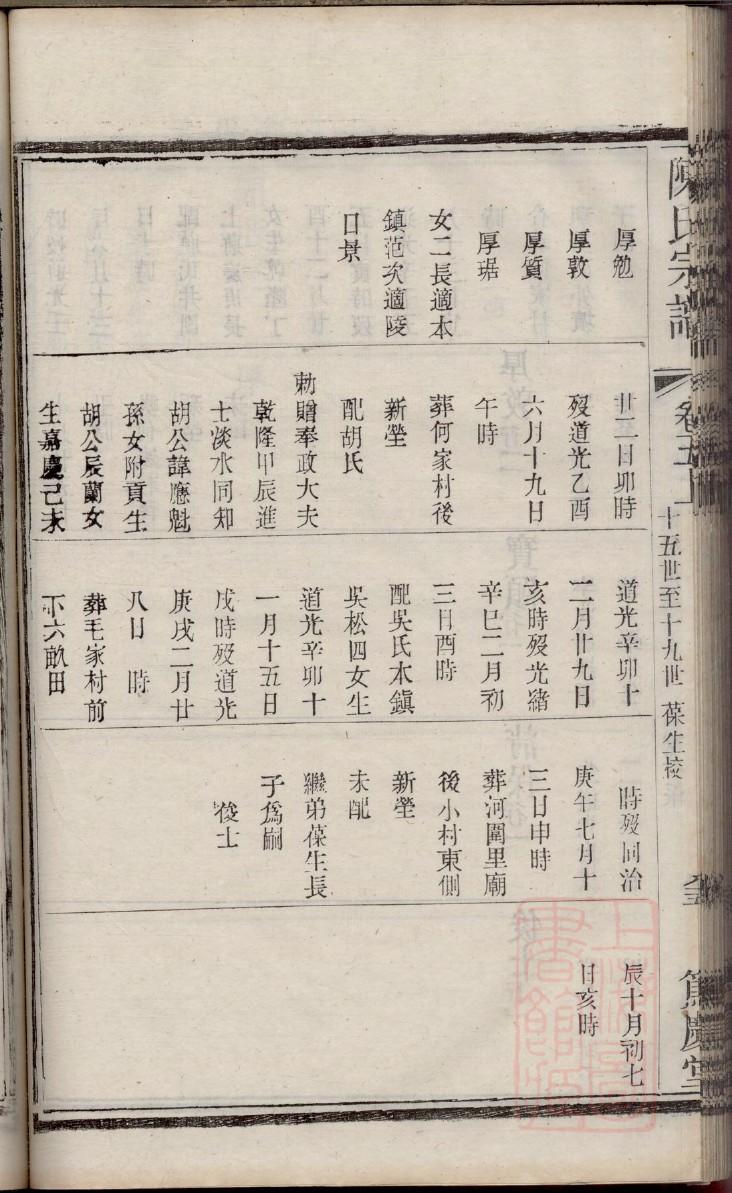 陳氏宗譜
卷五上
十五世至十九世 葆生授
篤慶堂
厚勉
厚敦
厚質
厚琚
女二長適本
鎮范次適陵
口景
廿二日卯時
歿道光乙酉
六月十九日
午時
葬何家村後
新塋
配胡氏
勅贈奉政大夫
乾隆甲辰進
士淡水同知
胡公諱應魁
孫女附貢生
胡公辰蘭女
生嘉慶己未
道光辛卯十
二月廿九日
亥時歿光緒
辛巳二月初
三日酉時
配吳氏本鎮
吳松四女生
道光辛卯十
一月十五日
戌時歿道光
庚戌二月廿
八日 時
葬毛家村前
下六畝田
時歿同治
庚午七月十
三日申時
葬河圍里廟
後小村東側
新塋
未配
繼弟葆生長
子爲嗣
俊士
辰十月初七
日亥時